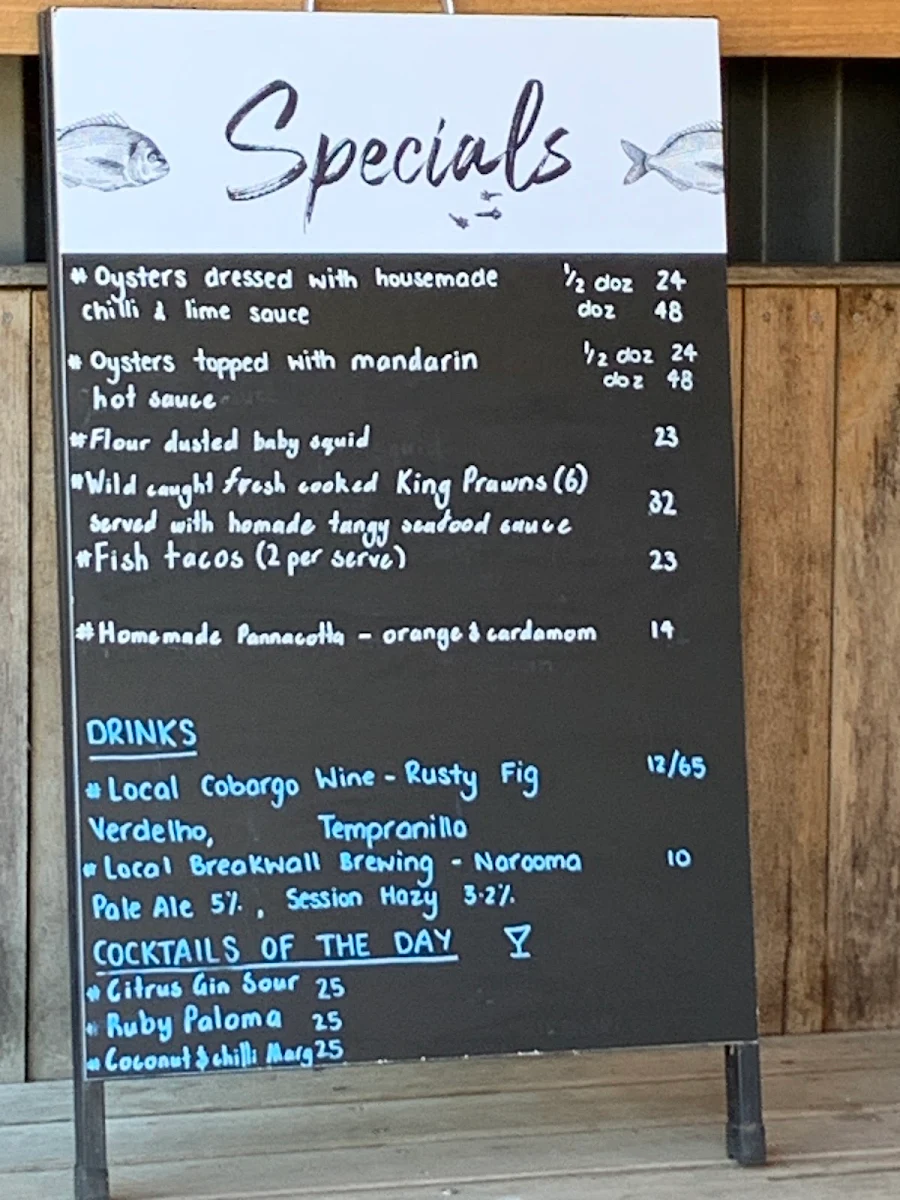 Specials
# Oysters dressed with housemade 1/2 doz 24
chilli & lime sauce doz 48
# Oysters topped with mandarin 1/2 doz 24
hot sauce doz 48
# Flour dusted baby squid 23
# Wild caught fresh cooked King Prawns (6)
served with homade tangy seafood sauce 32
# Fish tacos (2 per serve) 23
# Homemade Pannacotta - orange & cardamom 14
DRINKS
# Local Cobargo Wine - Rusty Fig 12/65
Verdelho, Tempranillo
# Local Breakwall Brewing - Narooma 10
Pale Ale 5%, Session Hazy 3.2%
COCKTAILS OF THE DAY
# Citrus Gin Sour 25
# Ruby Paloma 25
# Coconut & chilli Marg 25